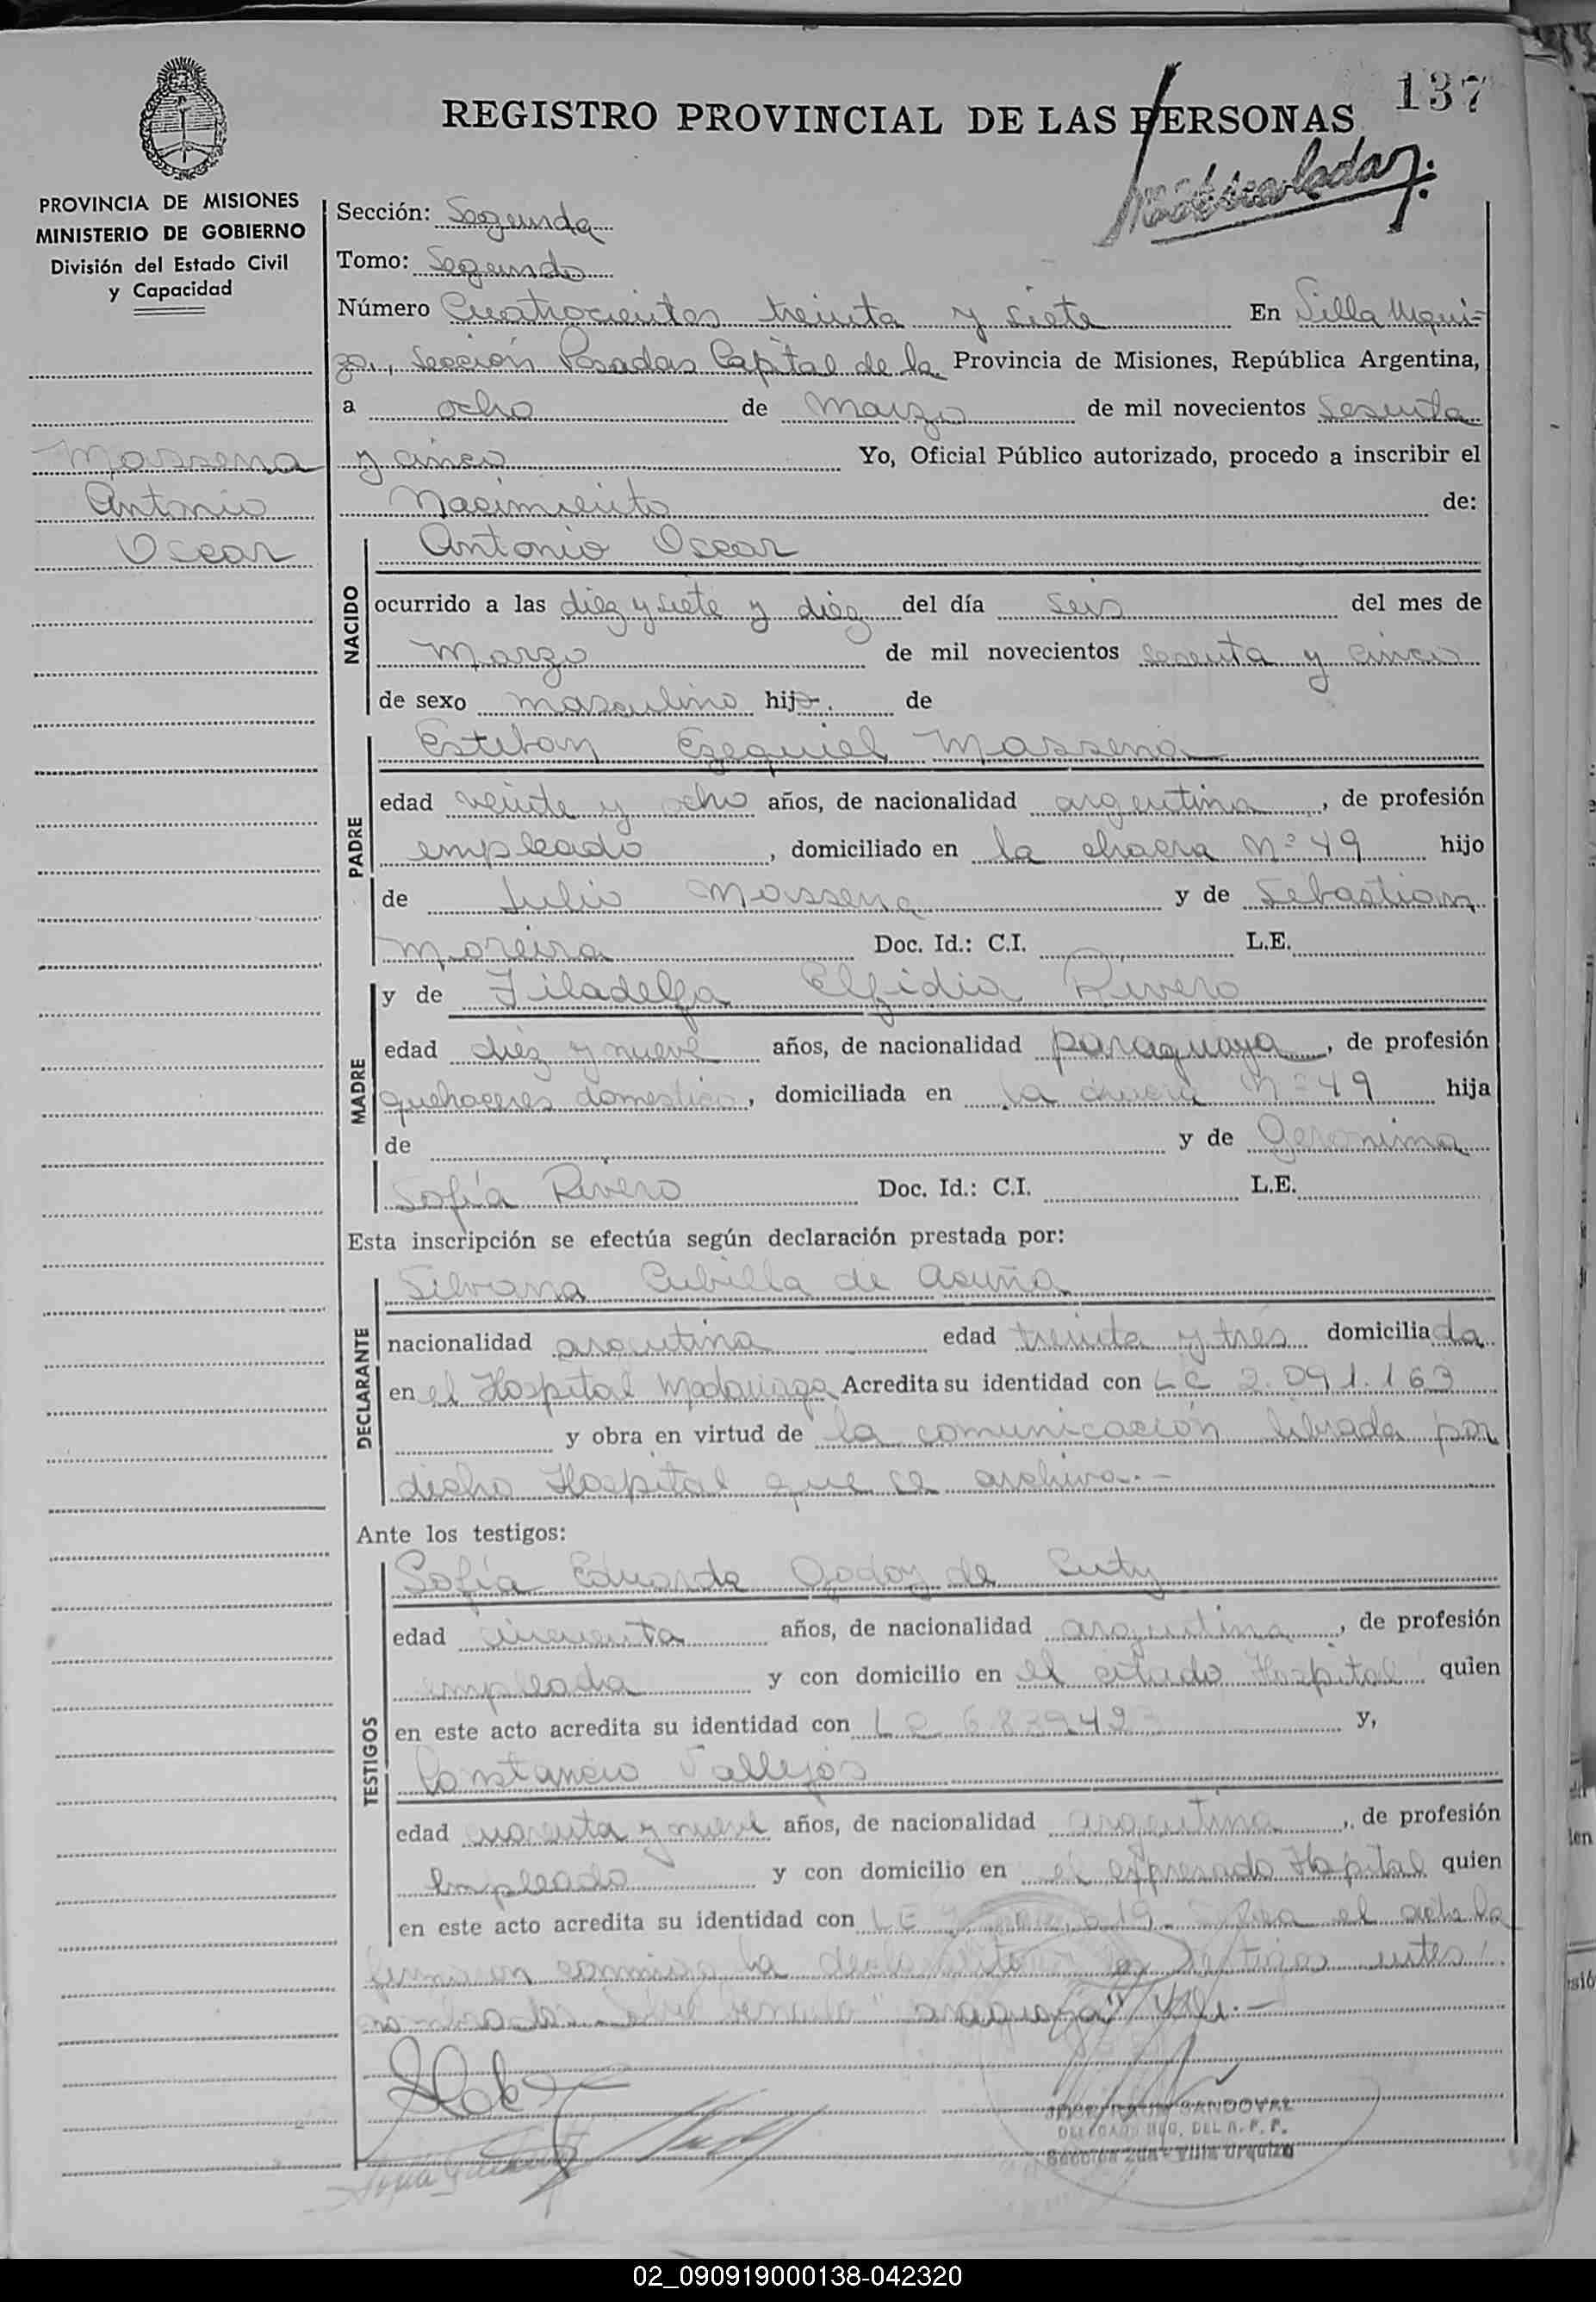 137
REGISTRO PROVINCIAL DE LAS PERSONAS
PROVINCIA DE MISIONES
MINISTERIO DE GOBIERNO
División del Estado Civil
y Capacidad
Massena
Antonio
Oscar
Sección: Segunda
Tomo: Segundo
Número Cuatrocientos treinta y siete En Villa Urqui-
za, Sección Posadas Capital de la Provincia de Misiones, República Argentina,
a ocho de Marzo de mil novecientos sesenta
y cinco Yo, Oficial Público autorizado, procedo a inscribir el
Nacimiento de:
NACIDO
Antonio Oscar
ocurrido a las diez y siete y diez del día seis del mes de
Marzo de mil novecientos sesenta y cinco
de sexo masculino hijo. de
PADRE
Esteban Ezequiel Massena
edad veinte y ocho años, de nacionalidad argentina, de profesión
empleado, domiciliado en la chacra Nº 49 hijo
de Julio Massena y de Sebastiana
Moreira Doc. Id.: C.I. L.E.
MADRE
y de Filadelfa Elfidia Rivero
edad diez y nueve años, de nacionalidad paraguaya, de profesión
quehaceres domesticos, domiciliada en la chacra Nº 49 hija
de y de Geronima
Sofía Rivero Doc. Id.: C.I. L.E.
Esta inscripción se efectúa según declaración prestada por:
DECLARANTE
Silvana Cubilla de Acuña
nacionalidad argentina edad treinta y tres domiciliada
en el Hospital Madariaga Acredita su identidad con LC 2.091.163
y obra en virtud de la comunicación librada por
dicho Hospital que se archiva.-
Ante los testigos:
TESTIGOS
Sofía Eduarda Godoy de
edad cincuenta años, de nacionalidad argentina, de profesión
empleada y con domicilio en el citado Hospital quien
en este acto acredita su identidad con y,
Constancio Vallejos
edad cuarenta y nueve años, de nacionalidad argentina, de profesión
empleado y con domicilio en el expresado Hospital quien
en este acto acredita su identidad con LE el acta la
firmaron conmigo la declarante y los testigos antes
nombrados.
SANDOVAL
Sección 2da - Villa Urquiza
02_090919000138-042320